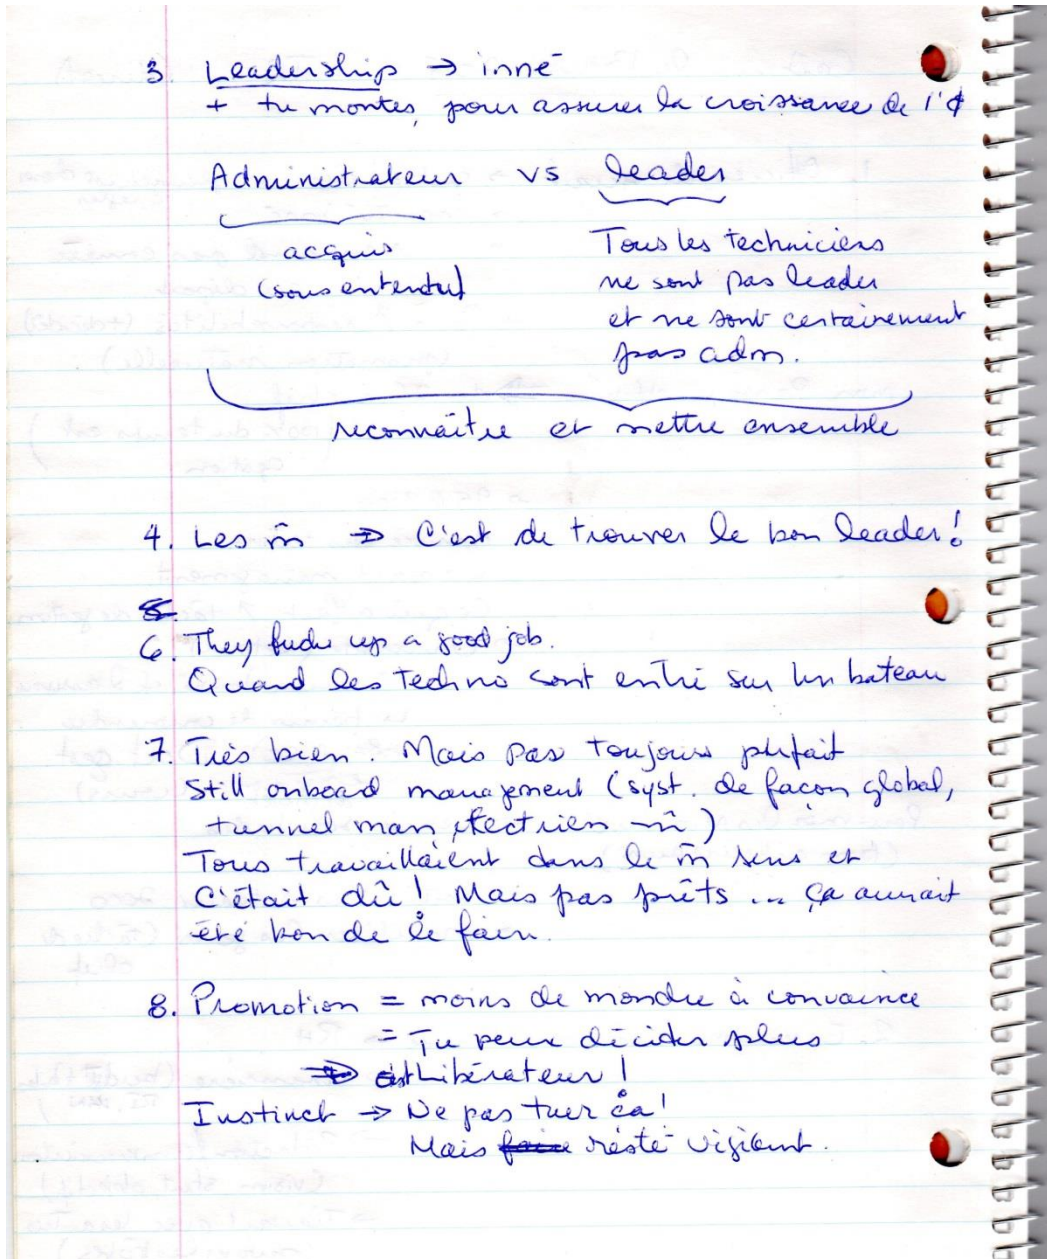 3. Leadership → inné
+ tu montes, pour assurer la croissance de l'¢
Administrateur vs leader
acquis
(sous entendu)
Tous les techniciens
ne sont pas leader
et ne sont certainement
pas adm.
reconnaître et mettre ensemble
4. Les m̂ → C'est de trouver le bon leader!
5.
6. They up a good job.
Quand les techno sont entré sur un bateau
7. Très bien. Mais pas toujours
Still onboard management (syst. de façon global,
tunnel man, m̂)
Tous travaillaient dans le m̂ sens et
C'était dû! Mais pas prêts ... ça aurait
été bon de le
8. Promotion = moins de à
= Tu peux décider plus
→ est Libérateur!
Instinct → Ne pas tuer ça!
Mais faire resté vigilant.